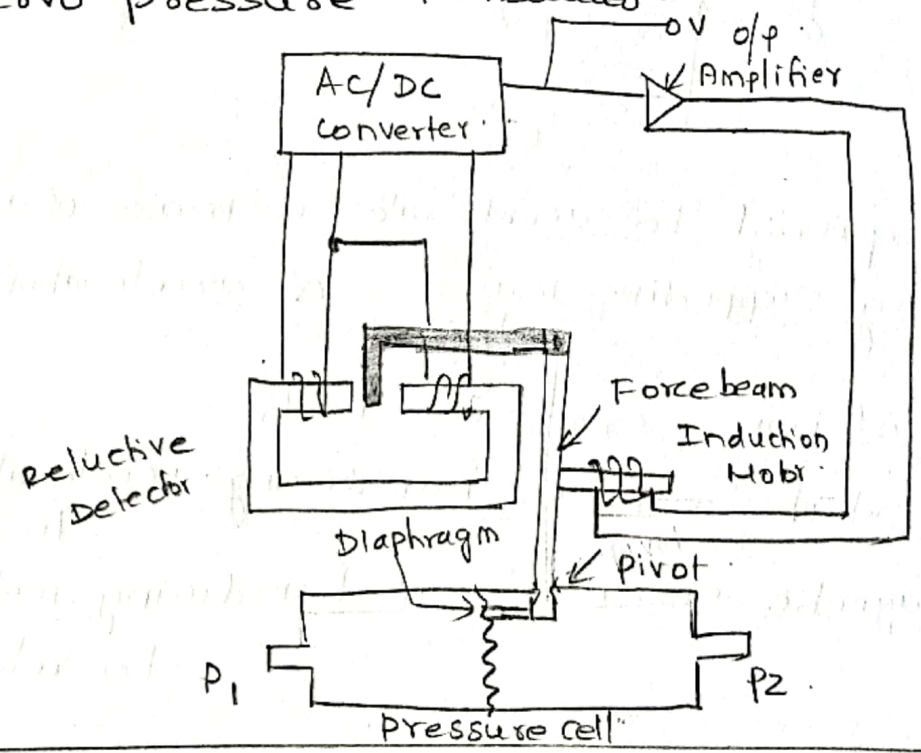 pressure
AC/DC
converter
0V o/p
Amplifier
Force beam
Induction
Motor
Reluctive
Detector
Diaphragm
pivot
P1
P2
pressure cell